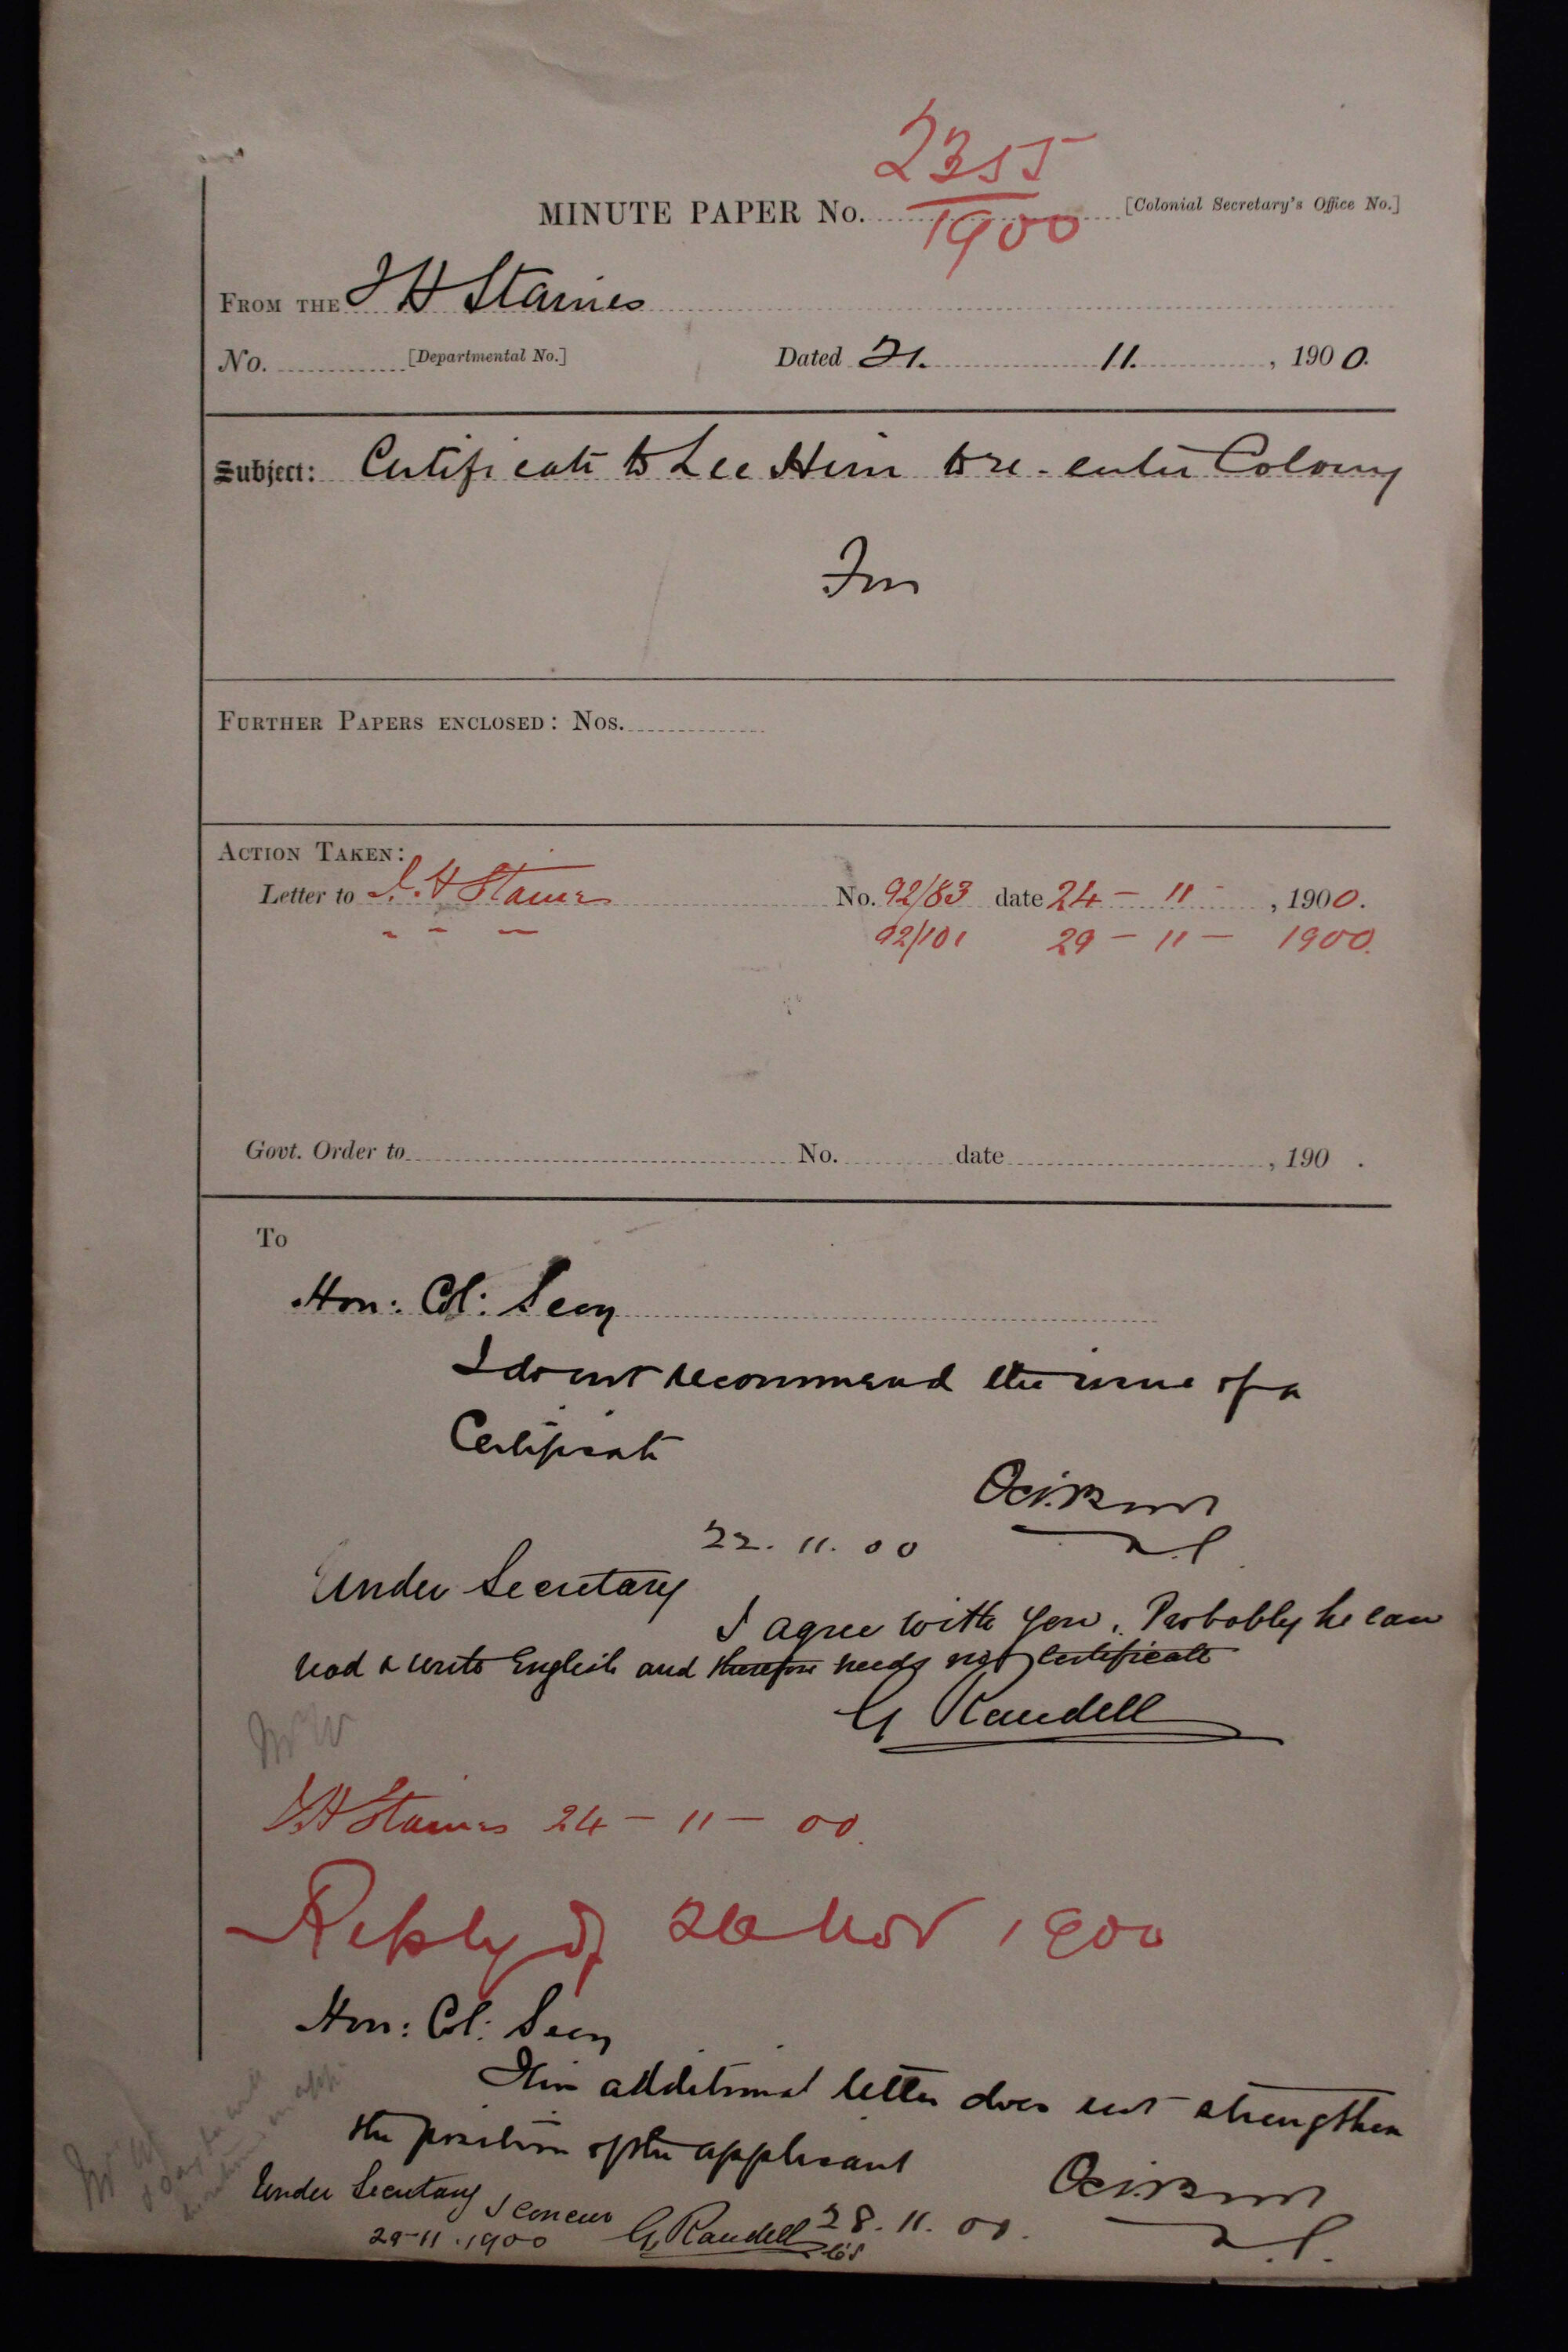 2355
MINUTE PAPER No. 1900 [Colonial Secretary's Office No.]
FROM THE J H Staines
No. [Departmental No.] Dated 21. 11. , 1900.
Subject: Certificate to Lee Him to re-enter Colony
Im
FURTHER PAPERS ENCLOSED: Nos.
ACTION TAKEN:
Letter to J. H Staines No. 92/83 date 24 - 11 - , 1900.
" " " 92/101 29 - 11 - 1900.
Govt. Order to No. date , 190 .
To
Hon: Col: Secy
I do not recommend the issue of a
Certificate
22. 11. 00
Under Secretary
I agree with you. Probably he can
read & write English and therefore needs no certificate
G Randell
Mr W
J H Staines 24 - 11 - 00.
Reply of 26 Nov 1900
Hon: Col: Secy
This additional letter does not strengthen
the position of the applicant
Under Secretary I concur
28. 11. 00.
29-11.1900 G Randell CS